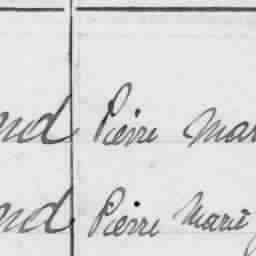 nd Pierre Mar
nd Pierre Marie